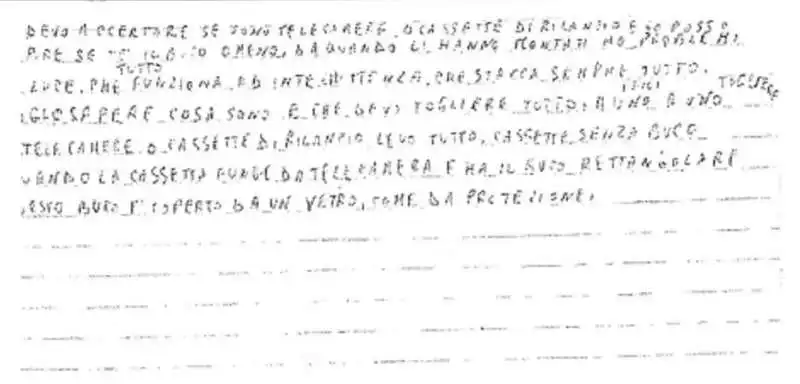 DEVO ACCERTARE SE SONO TELECAMERE O CASSETTE DI RILANCIO E SE POSSO
SE IL BUCO O MENO, DA QUANDO LI HANNO MONTATI HO PROBLEMI
TUTTO
LUCE, CHE FUNZIONA AD INTERMITTENZA, CHE STACCA SEMPRE TUTTO.
SAPERE COSA SONO E CHE DEVO TOGLIERE TUTTO, A UNO A UNO
TELECAMERE O CASSETTE DI RILANCIO LEVO TUTTO, CASSETTE SENZA BUCO
LA CASSETTA FUNGE DA TELECAMERA E HA IL BUCO RETTANGOLARE
BUCO E' COPERTO DA UN VETRO, COME DA PROTEZIONE.